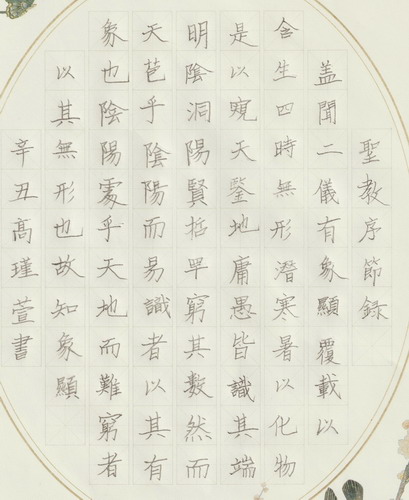 聖教序節錄
盖聞二儀有象顯覆載以
含生四時無形潛寒暑以化物
是以窺天鑒地庸愚皆識其端
明陰洞陽賢哲罕窮其數然而
天苞乎陰陽而易識者以其有
象也陰陽處乎天地而難窮者
以其無形也故知象顯
辛丑高瑾萱書